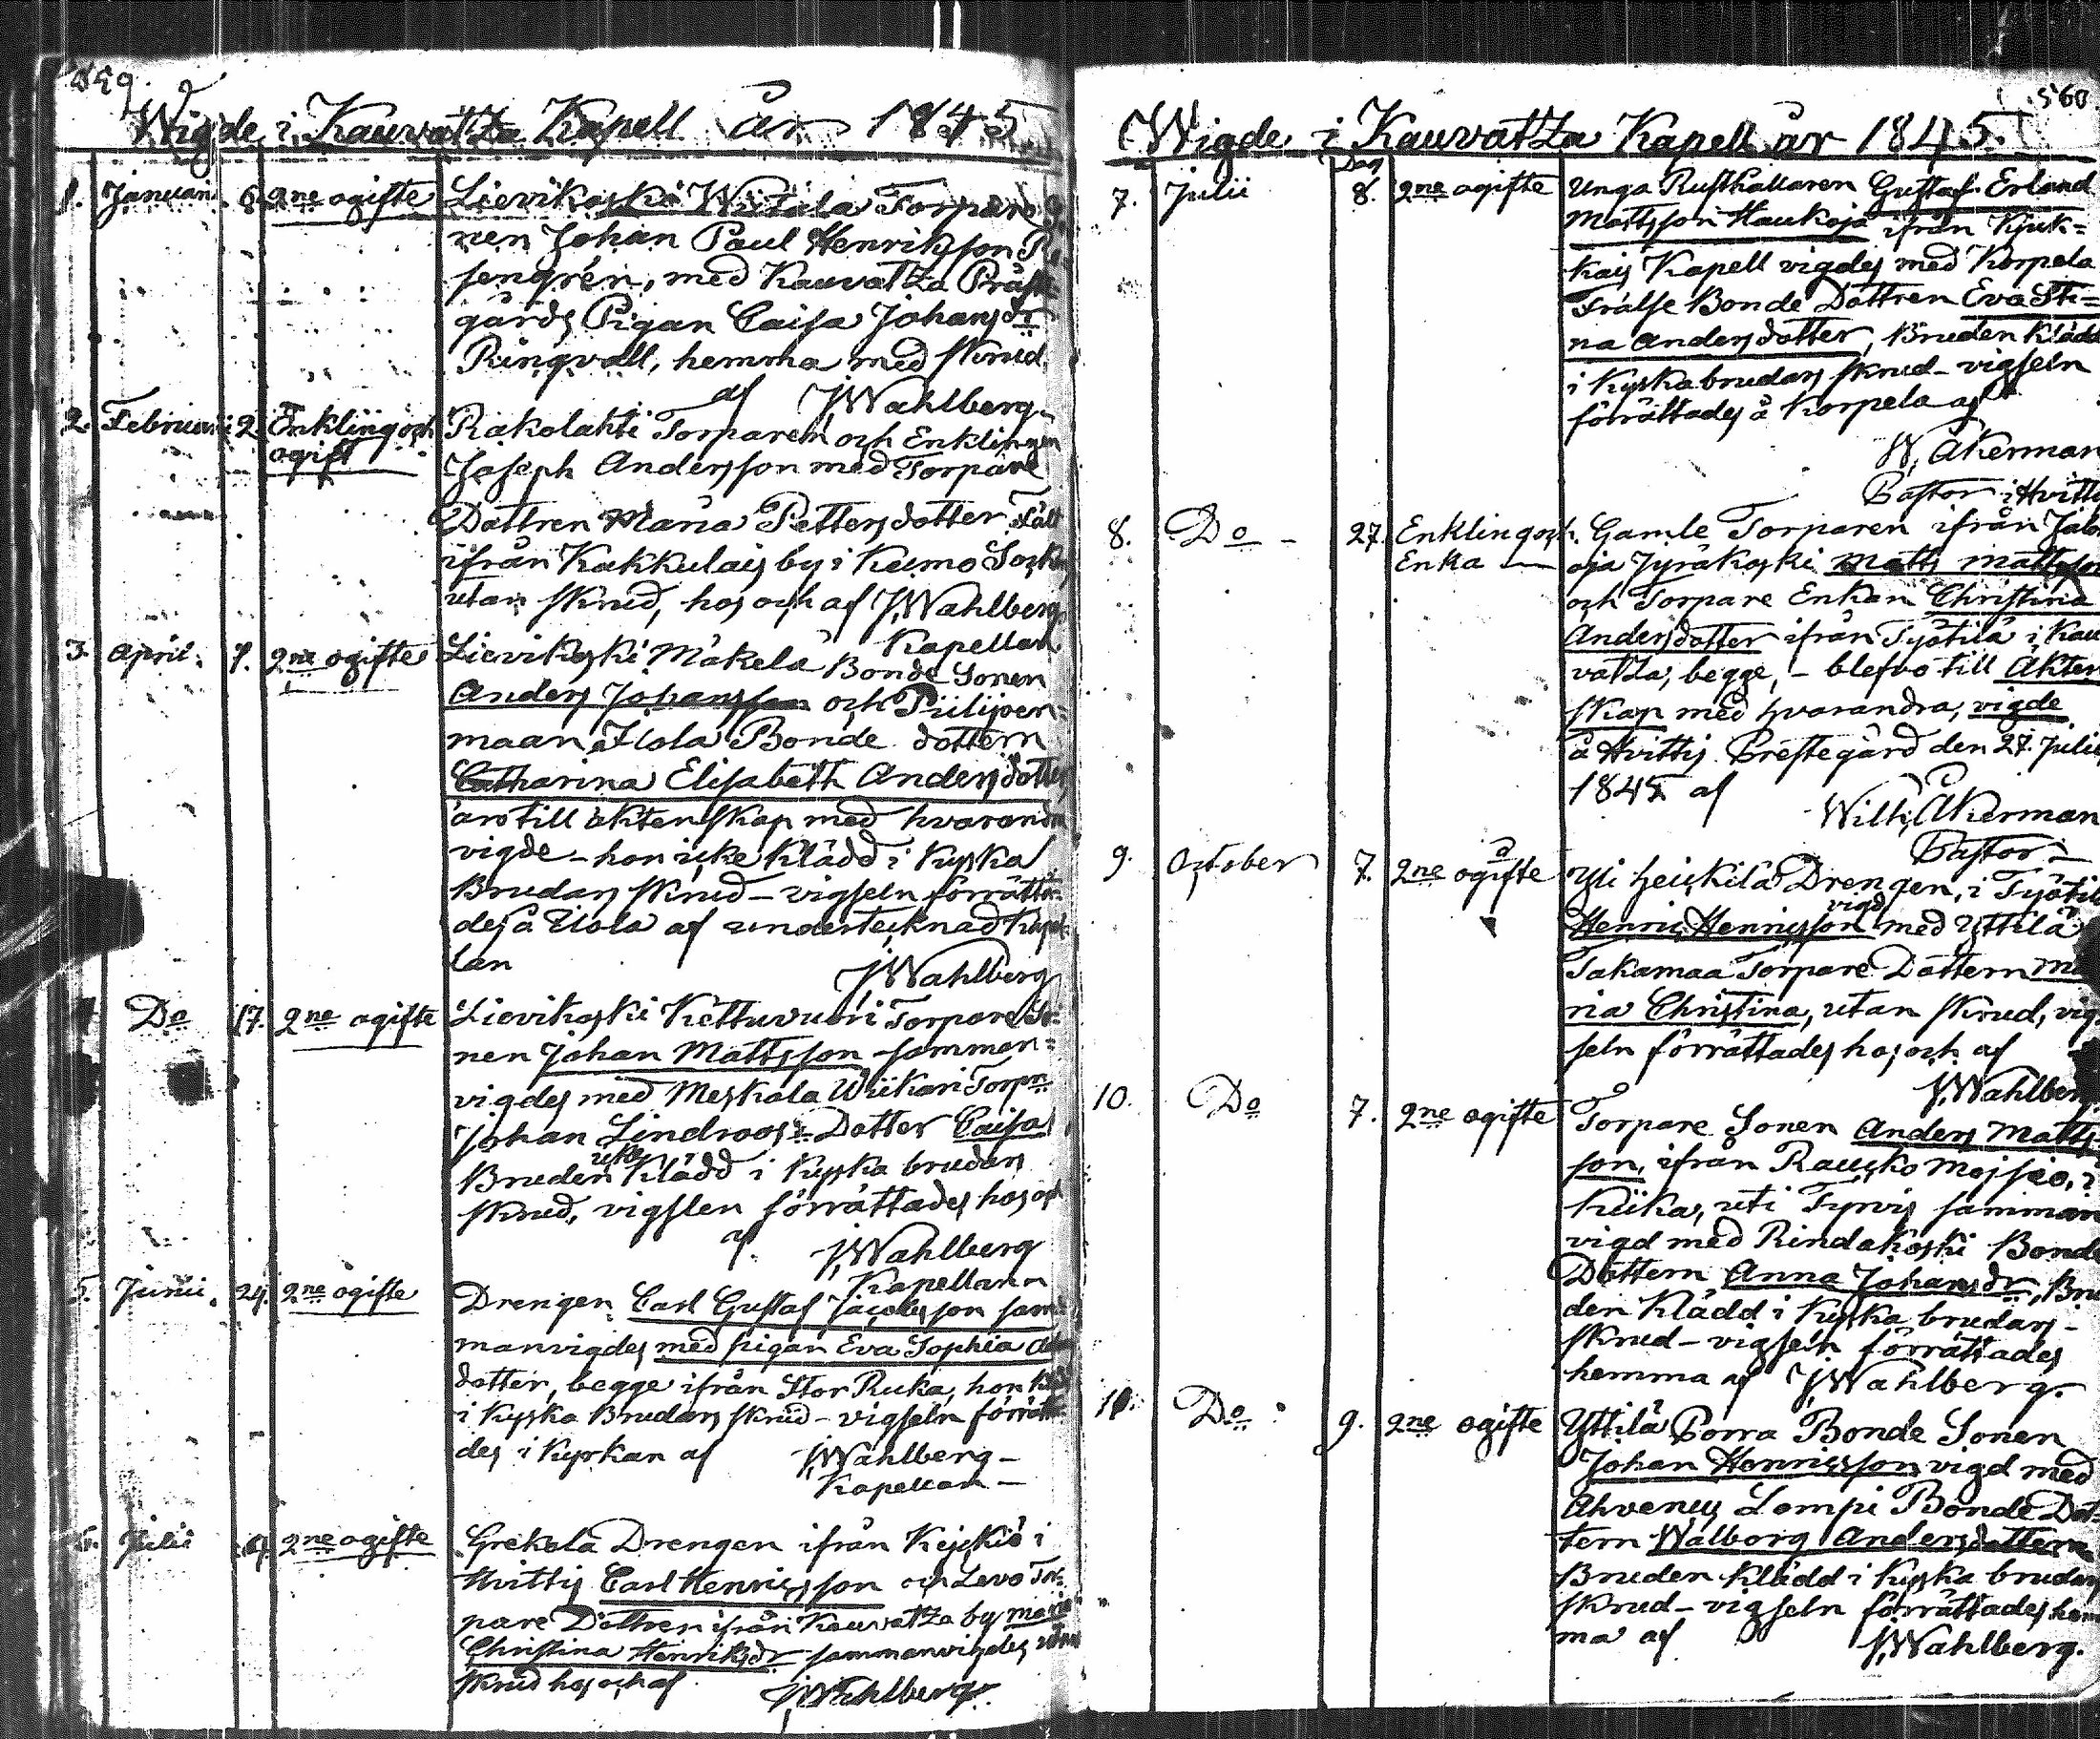 559.
Wigde i Kauvatza Kapell år 1845
1. Januari 6. 2ne ogifte Lievikoski Wiitala Torpare
nen Johan Paul Henriksson
sengrén, med Kauvatza Präste
gårds Pigan Caisa Johansdr
Ringvall, hemma med skrud
af JWahlberg
2. Februarii 2. Enkling och Rakolahti Torparen och Enklingen
ogift Joseph Andersson med Torpare
Dottren Maria Pettersdotter Fält
ifrån Kakkulais by i Keumo Sockn
utan skrud, hos och af JWahlberg
Kapellan
3. April. 1. 2ne ogifte Lievikoski Mäkelä Bonde Sonen
Anders Johansson och Piilijoen=
maan Ilola Bonde dottern
Catharina Elisabeth Andersdotter
äro till äktenskap med hvarandra
vigde – hon icke klädd i kyska
Brudars skrud – vigseln förrätta=
des å Ilola af undertecknad Kapel
lan JWahlberg
Do 17. 2ne ogifte Lievikoski Kettuvuori Torpare So=
nen Johan Mattsson samman=
vigdes med Meskala Wiikari Torprn
Johan Lindroos Dotter Caisa
icke
Bruden klädd i kyska brudars
skrud, vigslen förrättades hos och
af JWahlberg
Kapellann
5. Junii. 24. 2ne ogifte Drengen Carl Gustaf Jacobsson sam=
manvigdes med pigan Eva Sophia
dotter, begge ifrån Stor Ruka, hon klädd
i kyska Brudars skrud – vigseln förrätta=
des i kyrkan af JWahlberg –
Kapellan –
6. Julii 2ne ogifte Grekola Drengen ifrån Keikiö i
Hvittis Carl Henricsson och Levo Tor=
pare Dottren ifrån Kauvatza by Maria
Christina Henriksdr sammanvigdes, utan
skrud hos och af JWahlberg.
560.
Wigde i Kauvatza Kapell år 1845.
Dag
7. Julii 8. 2ne ogifte Unga Rusthållaren Gustaf Erland
Mattsson Haukoja ifrån Kjuk=
kais Kapell vigdes med Korpela
Frälse Bonde Dottren Eva Sti=
na Andersdotter, Bruden klädd
i kyska brudars skrud – vigseln
förrättades å Korpela af
W. Åkerman
Pastor i Hvittis
8. Do – 27. Enkling och Gamle Torparen ifrån
Enka — oja Jyräkoski Matts Mattsson
och Torpare Enkan Christina
Andersdotter ifrån Työtilä i Kau
vatza, begge, – blefvo till Äkten
skap med hvarandra, vigde
å Hvittis Prestegård den 27. Julii
1845 af Wilh. Åkerman
Pastor –
9. October 7. 2ne ogifte Yli Heikkilä Drengen, i Työtilä
vigd
Henric Henricsson med Yttilä
Takamaa Torpare Dottern Ma
ria Christina, utan skrud, vig
seln förrättades hos och af
JWahlberg
10. Do 7. 2ne ogifte Torpare Sonen Anders Matts
son, ifrån Moisio, i
Kiika, uti Tyrvis samman
vigd med Rindakoski Bonde
Dottern Anna Johansdr, Bru
den klädd i kyska brudars –
skrud – vigseln förrättades
hemma af JWahlberg.
11. Do 9. 2ne ogifte Yttilä Porra Bonde Sonen
Johan Henricsson vigd med
Ahvenus Lampi Bonde Dot=
tern Walborg Andersdottern
Bruden klädd i kyska brudars
skrud – vigseln förrättades hem
ma af JWahlberg.